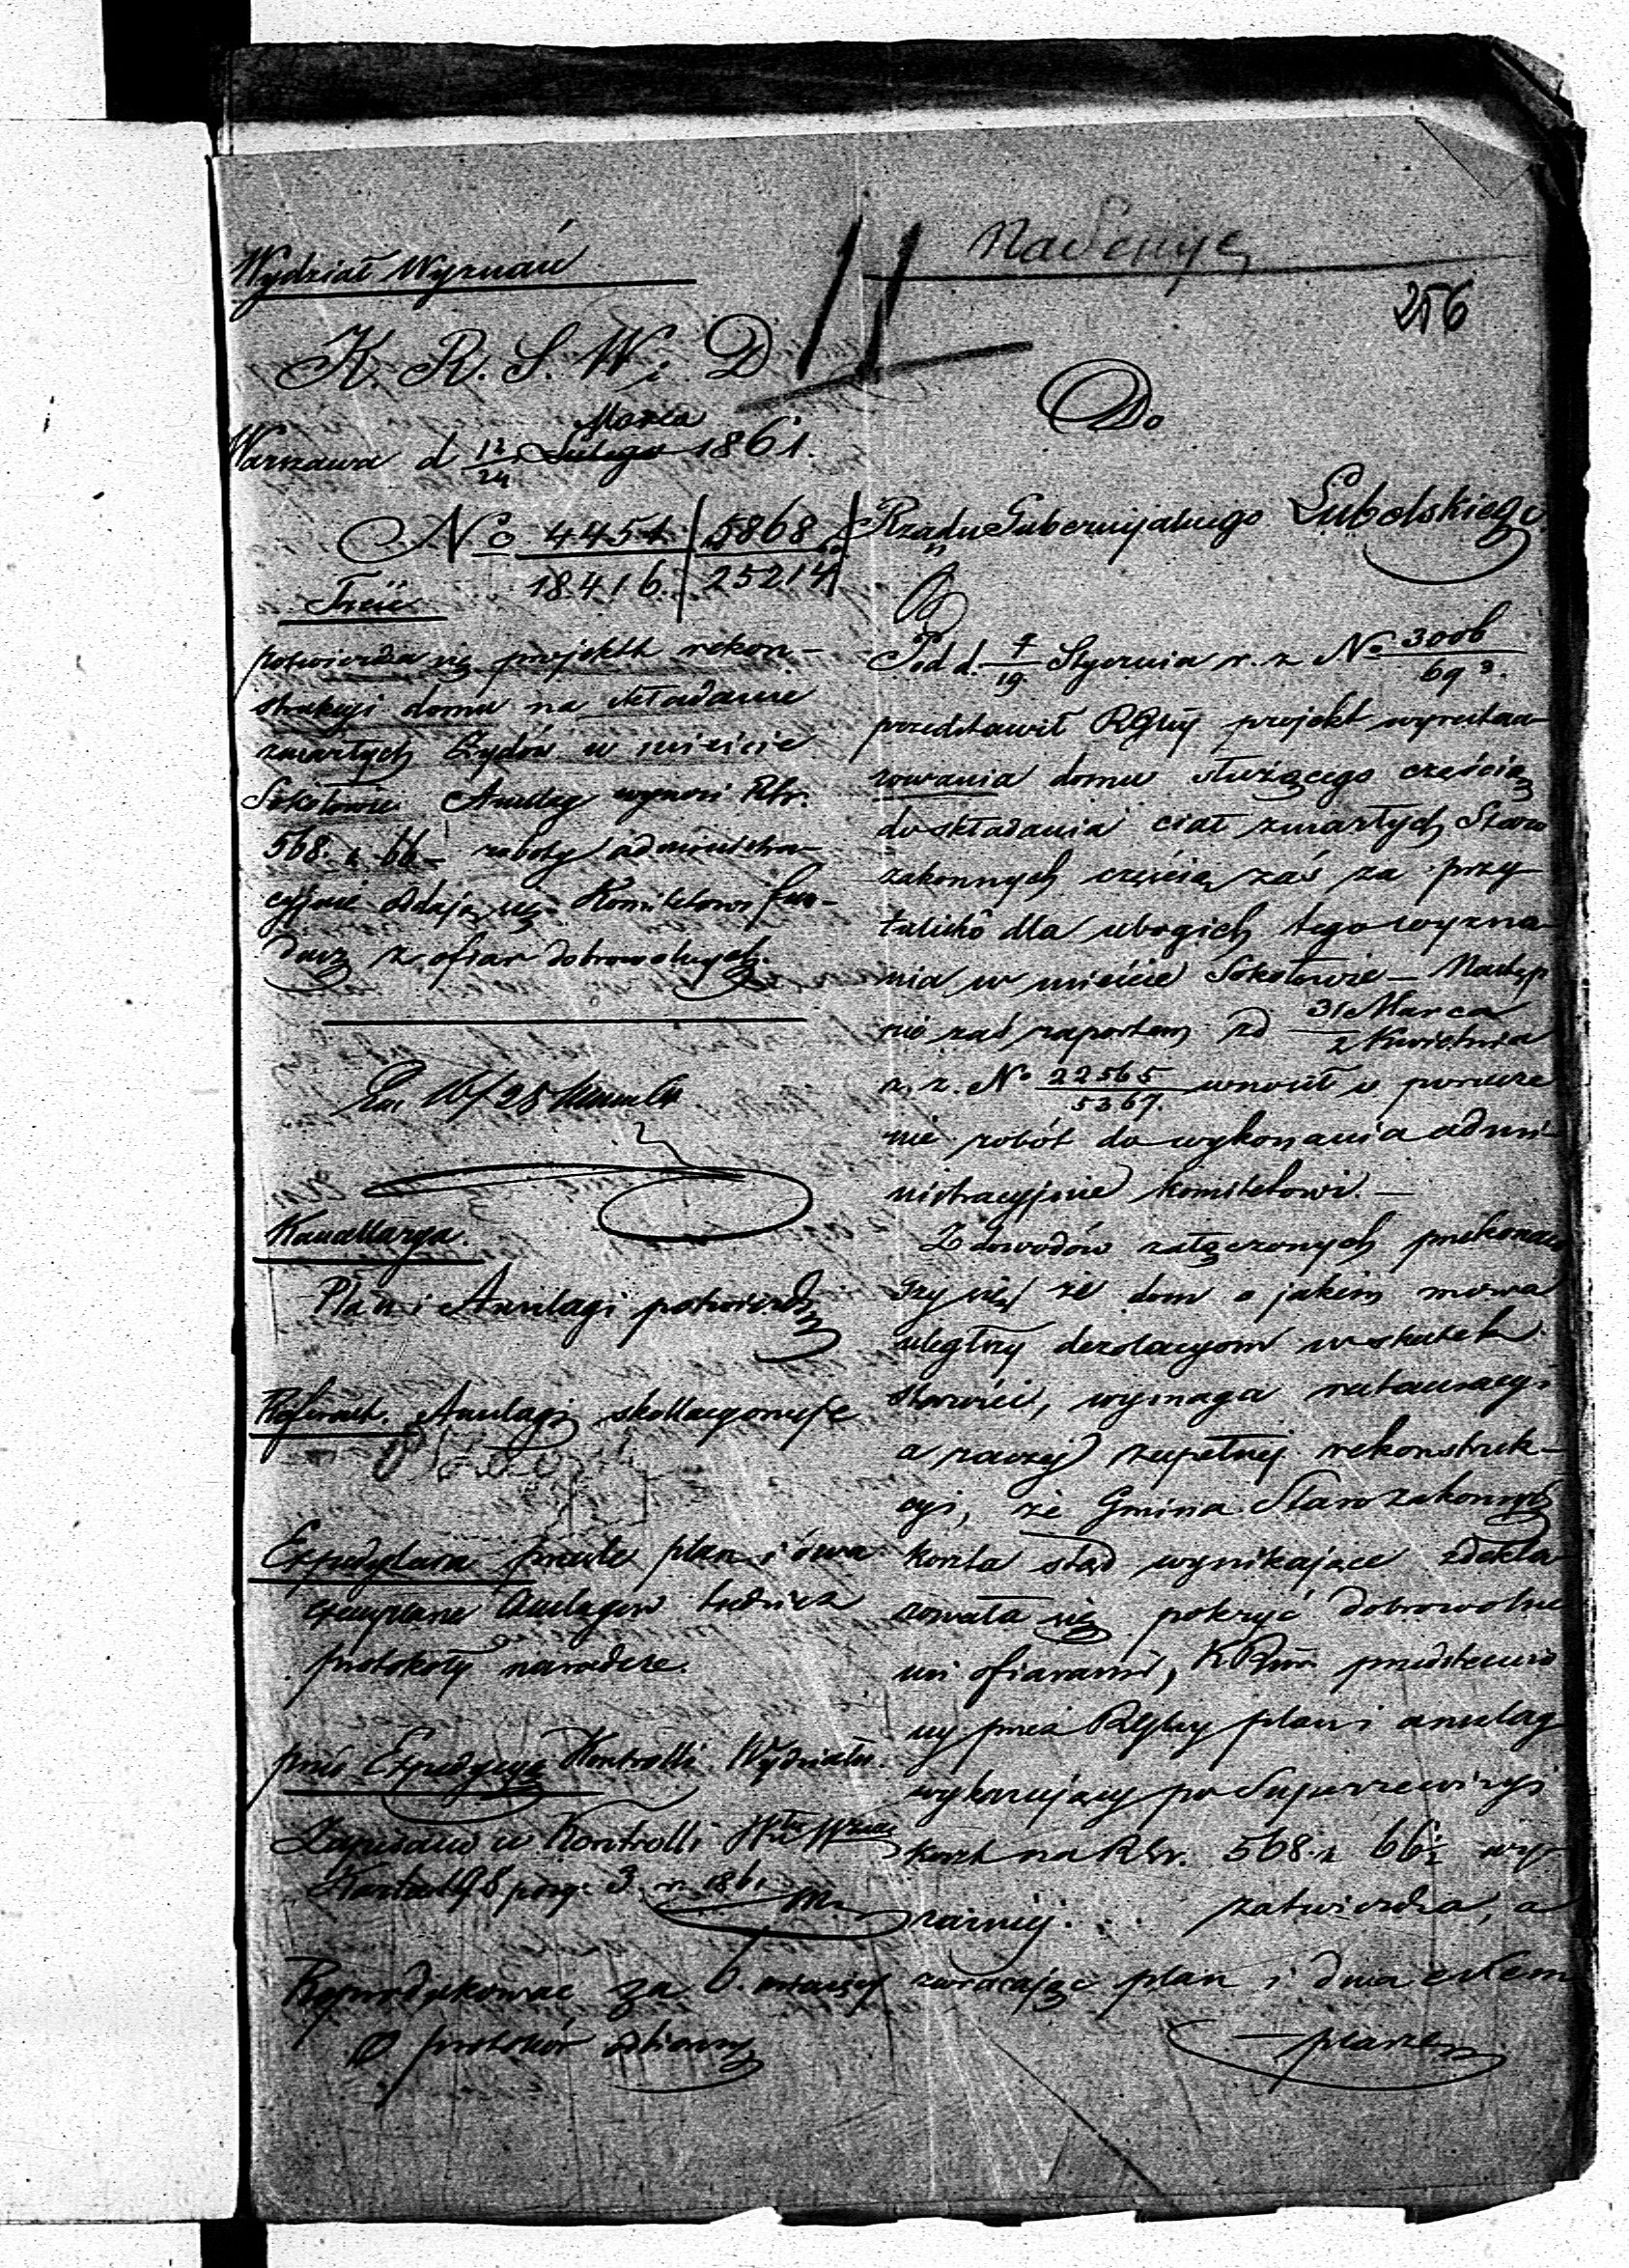 Wydział Wyznań
K. R. S. W. i D
Marca
Warszawa d 12/24 Lutego 1861.
No 4454/18416. 5868/25214
Treść
potwierdza się projekt rekon-
strukcyi domu na składanie
zmarłych Żydów w mieście
Sokołowie Anszlag wynosi Rbr.
568. k. 66 roboty administra-
cyjnie oddają się Komitetowi fun-
dusz z ofiar dobrowolnych.
Kancellarya.
Plan i Anszlagi potwierdz
Anszlagi skollacyonuje
Expedytura prześle plan i dwa
exemplarze Anszlagów tudzież
protokoły naradcze.
przed Expedycyą Kontrolli Wydziału.
Zapisano w Kontrolli
r. 1861
Reprodukować za 6. miesięcy
o protokół odbioru
256
Do
Rządu Gubernijalnego Lubelskiego.
Pod d. 7/19 Stycznia r. z No 3006/693.
przedstawił RGlny projekt wyrestau-
rowania domu służącego częścią
do składania ciał zmarłych Staro
zakonnych częścią zaś za przy-
tulisko dla ubogich tego wyzna-
nia w mieście Sokołowie — Następ
nie zaś raportem zd 31 Marca/2 Kwietnia
r. z. No 22565/5367. wnosił o porucze
nie robót do wykonania admi-
nistracyjnie komitetowi. —
Z dowodów załączonych przekonaw
szy się, że dom o jakim mowa
uległszy dezolacyom w skutek
starości, wymaga restauracyi
a raczej zupełnej rekonstruk-
cyi, że Gmina Starozakonnych
koszta stąd wynikające zdekla
rowała się pokryć dobrowolne
mi ofiarami, KRwa przedstawio
ny przez RGlny plan i anszlag
wykazujący po Superrewizyi
koszt na Rbr. 568. k 66½ wy-
raźniej. . . zatwierdza, a
zwracając plan i dwa exem
plarze